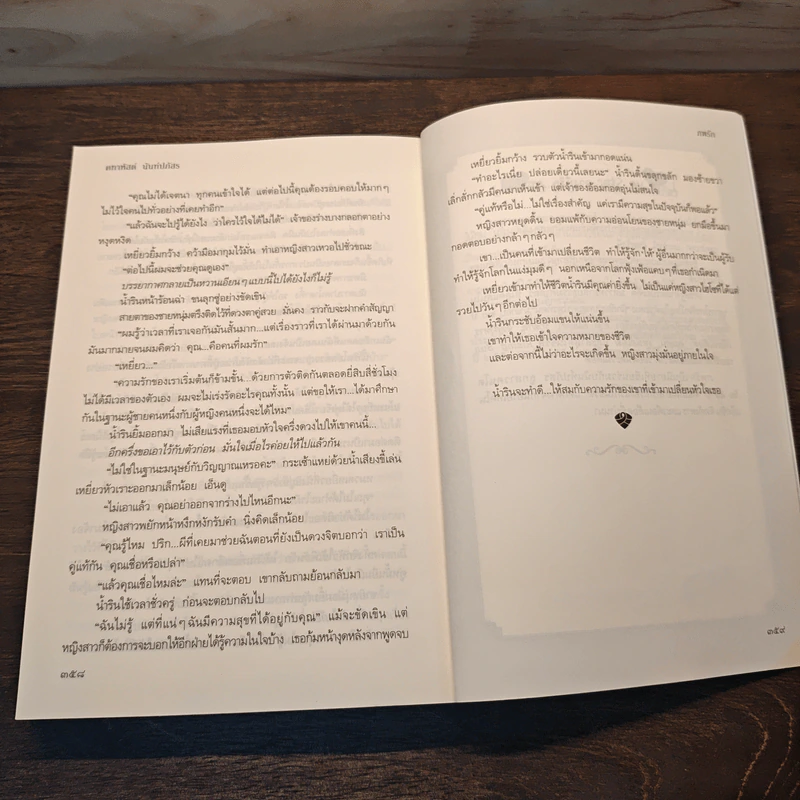 ศตาพัสต์ นันท์ปภัสร
"คุณไม่ได้เจตนา ทุกคนเข้าใจได้ แต่ต่อไปนี้คุณต้องรอบคอบให้มากๆ
ไม่ไว้ใจคนไปทั่วอย่างที่เคยทำอีก"
"แล้วฉันจะไปรู้ได้ยังไง ว่าใครไว้ใจได้ไม่ได้" เจ้าของร่างบางถลอกตาอย่าง
หงุดหงิด
เหยี่ยวยิ้มกว้าง คว้ามือมากุมไว้มั่น ทำเอาหญิงสาวเหวอไปชั่วขณะ
"ต่อไปนี้ผมจะช่วยคุณดูเอง"
บรรยากาศกลายเป็นหวานเอียนๆ แบบนี้ไปได้ยังไงก็ไม่รู้
น้ำรินหน้าร้อนฉ่า ขนลุกซู่อย่างขัดเขิน
สายตาของชายหนุ่มตรึงติดไว้ที่ดวงตาคู่สวย มั่นคง ราวกับจะฝากคำสัญญา
"ผมรู้ว่าเวลาที่เราเจอกันมันสั้นมาก...แต่เรื่องราวที่เราได้ผ่านมาด้วยกัน
มันมากมายจนผมคิดว่า คุณ...คือคนที่ผมรัก"
"เหยี่ยว..."
"ความรักของเราเริ่มต้นก็ข้ามขั้น...ด้วยการตัวติดกันตลอดยี่สิบสี่ชั่วโมง
ไม่ได้มีเวลาของตัวเอง ผมจะไม่เร่งรัดอะไรคุณทั้งนั้น แต่ขอให้เรา...ได้มาศึกษา
กันในฐานะผู้ชายคนหนึ่งกับผู้หญิงคนหนึ่งจะได้ไหม"
น้ำรินยิ้มออกมา ไม่เสียแรงที่เธอมอบหัวใจครึ่งดวงไปให้เขาคนนี้...
อีกครึ่งขอเอาไว้กับตัวก่อน มั่นใจเมื่อไรค่อยให้ไปแล้วกัน
"ไม่ใช่ในฐานะมนุษย์กับวิญญาณเหรอคะ" กระเซ้าแหย่ด้วยน้ำเสียงขี้เล่น
เหยี่ยวหัวเราะออกมาเล็กน้อย เอ็นดู
"ไม่เอาแล้ว คุณอย่าออกจากร่างไปไหนอีกนะ"
หญิงสาวพยักหน้าหงึกหงักรับคำ นิ่งคิดเล็กน้อย
"คุณรู้ไหม ปริก...ผีที่เคยมาช่วยฉันตอนที่ยังเป็นดวงจิตบอกว่า เราเป็น
คู่แท้กัน คุณเชื่อหรือเปล่า"
"แล้วคุณเชื่อไหมล่ะ" แทนที่จะตอบ เขากลับถามย้อนกลับมา
น้ำรินใช้เวลาชั่วครู่ ก่อนจะตอบกลับไป
"ฉันไม่รู้ แต่ที่แน่ๆ ฉันมีความสุขที่ได้อยู่กับคุณ" แม้จะขัดเขิน แต่
หญิงสาวก็ต้องการจะบอกให้อีกฝ่ายได้รู้ความในใจบ้าง เธอก้มหน้างุดหลังจากพูดจบ
๓๕๘
ภพรัก
เหยี่ยวยิ้มกว้าง รวบตัวน้ำรินเข้ามากอดแน่น
"ทำอะไรเนี่ย ปล่อยเดี๋ยวนี้เลยนะ" น้ำรินดิ้นขลุกขลัก มองซ้ายขวา
เลิ่กลั่กกลัวมีคนมาเห็นเข้า แต่เจ้าของอ้อมกอดอุ่นไม่สนใจ
"คู่แท้หรือไม่...ไม่ใช่เรื่องสำคัญ แค่เรามีความสุขในปัจจุบันก็พอแล้ว"
หญิงสาวหยุดดิ้น ยอมแพ้กับความอ่อนโยนของชายหนุ่ม ยกมือขึ้นมา
กอดตอบอย่างกล้าๆ กลัวๆ
เขา...เป็นคนที่เข้ามาเปลี่ยนชีวิต ทำให้รู้จัก 'ให้' ผู้อื่นมากกว่าจะเป็นผู้รับ
ทำให้รู้จักโลกในแง่มุมดีๆ นอกเหนือจากโลกฟุ้งเฟ้อแคบๆ ที่เธอกำเนิดมา
เหยี่ยวเข้ามาทำให้ชีวิตน้ำรินมีคุณค่ายิ่งขึ้น ไม่เป็นแค่หญิงสาวไฮโซที่ได้แต่
รวยไปวันๆ อีกต่อไป
น้ำรินกระชับอ้อมแขนให้แน่นขึ้น
เขาทำให้เธอเข้าใจความหมายของชีวิต
และต่อจากนี้ไม่ว่าอะไรจะเกิดขึ้น หญิงสาวมุ่งมั่นอยู่ภายในใจ
น้ำรินจะทำดี...ให้สมกับความรักของเขาที่เข้ามาเปลี่ยนหัวใจเธอ
๓๕๙